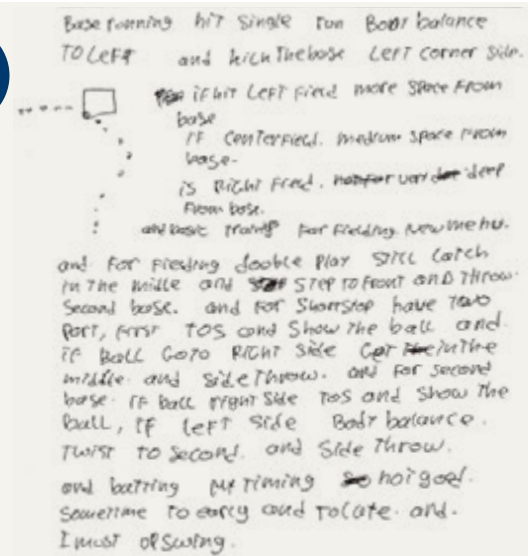 Base running hit single run Body balance
TO LEFT and kick the base Left corner side.
if hit LEFT Field more space From
base
IF Centerfield. medium space From
base.
is Right Field. deep
From base.
and basic For Fielding New menu.
and For Fielding double Play still catch
in the middle and step to front and throw.
Second base. and For Shortstop have two
Part, first TOS and Show the ball and.
iF Ball Go to Right side in the
middle. and side throw. and For second
base. IF ball right side TOS and show the
Ball, IF left side Body balance.
Twist to second. and Side Throw.
and batting My timing not good.
Sometime to early and To late. and.
I most swing.